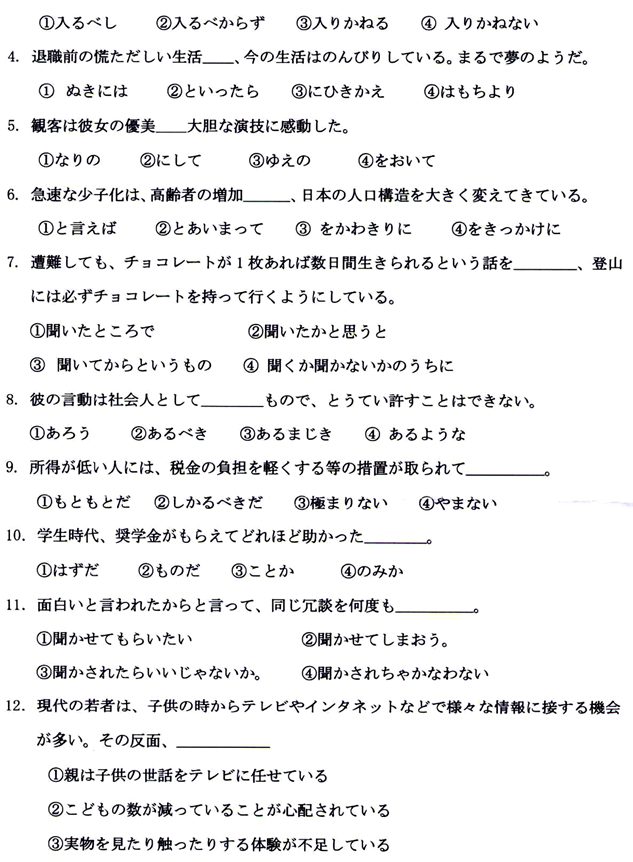 ①入るべし　②入るべからず　③入りかねる　④ 入りかねない
4. 退職前の慌ただしい生活____、今の生活はのんびりしている。まるで夢のようだ。
① ぬきには　②といったら　③にひきかえ　④はもちより
5. 観客は彼女の優美____大胆な演技に感動した。
①なりの　②にして　③ゆえの　④をおいて
6. 急速な少子化は、高齢者の増加______、日本の人口構造を大きく変えてきている。
①と言えば　②とあいまって　③ をかわきりに　④をきっかけに
7. 遭難しても、チョコレートが1枚あれば数日間生きられるという話を________、登山
には必ずチョコレートを持って行くようにしている。
①聞いたところで　②聞いたかと思うと
③ 聞いてからというもの　④ 聞くか聞かないかのうちに
8. 彼の言動は社会人として________もので、とうてい許すことはできない。
①あろう　②あるべき　③あるまじき　④ あるような
9. 所得が低い人には、税金の負担を軽くする等の措置が取られて__________。
①もともとだ　②しかるべきだ　③極まりない　④やまない
10. 学生時代、奨学金がもらえてどれほど助かった________。
①はずだ　②ものだ　③ことか　④のみか
11. 面白いと言われたからと言って、同じ冗談を何度も__________。
①聞かせてもらいたい　②聞かせてしまおう。
③聞かされたらいいじゃないか。　④聞かされちゃかなわない
12. 現代の若者は、子供の時からテレビやインタネットなどで様々な情報に接する機会
が多い。その反面、____________
①親は子供の世話をテレビに任せている
②こどもの数が減っていることが心配されている
③実物を見たり触ったりする体験が不足している